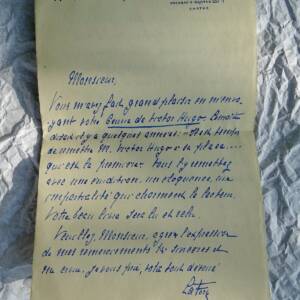 Monsieur,
Vous m'avez fait grand plaisir en m'envo-
yant votre Génie de Victor Hugo.
disait il y a quelques années :
M. Victor Hugo à sa place....
qui est la première. Vous l'y mettez
avec une érudition, une éloquence, une
impartialité qui charment le lecteur.
Votre beau livre sera lu et relu.
Veuillez, Monsieur, agréer l'expression
de mes remerciements les sincères et
me croire, je vous prie, votre tout dévoué